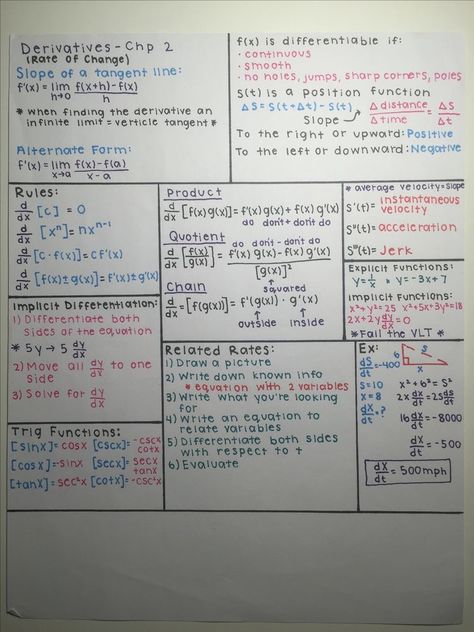 Derivatives - Chp 2
(Rate of Change)
Slope of a tangent line:
f'(x) = lim f(x+h)-f(x)
h→0 h
* when finding the derivative an
infinite limit = verticle tangent *
Alternate Form:
f'(x) = lim f(x)-f(a)
x→a x-a
f(x) is differentiable if:
· continuous
· smooth
· no holes, jumps, sharp corners, poles
S(t) is a position function
ΔS = S(t+Δt) - S(t)
Slope → Δ distance / Δ time = ΔS / Δt
To the right or upward: Positive
To the left or downward: Negative
Rules:
d/dx [c] = 0
d/dx [xⁿ] = nxⁿ⁻¹
d/dx [c·f(x)] = cf'(x)
d/dx [f(x)±g(x)] = f'(x)±g'(x)
Product
d/dx [f(x)g(x)] = f'(x)g(x) + f(x)g'(x)
do don't + don't do
Quotient
do don't - don't do
d/dx [f(x)/g(x)] = f'(x)g(x) - f(x)g'(x)
[g(x)]²
squared
Chain
d/dx = [f(g(x))] = f'(g(x)) · g'(x)
outside inside
* average velocity = slope
S'(t) = instantaneous
velocity
S''(t) = acceleration
S'''(t) = Jerk
Explicit Functions:
y = 1/x y = -3x+7
Implicit Functions:
x²+y²=25 x²+5x+3y²=18
2x+2y dy/dx = 0
*Fail the VLT*
Implicit Differentiation:
1) Differentiate both
sides of the equation
* 5y → 5 dy/dx
2) Move all dy/dx to one
side
3) Solve for dy/dx
Trig Functions:
[sinx] = cosx [cscx] = -cscx
cotx
[cosx] = -sinx [secx] = secx
tanx
[tanx] = sec²x [cotx] = -csc²x
Related Rates:
1) Draw a picture
2) Write down known info
* equation with 2 variables
3) Write what you're looking
for
4) Write an equation to
relate variables
5) Differentiate both sides
with respect to t
6) Evaluate
Ex:
6 s
x
ds/dt = -400
s = 10
x = 8
dx/dt = ?
x²+6² = s²
2x dx/dt = 2s ds/dt
16 dx/dt = -8000
dx/dt = -500
dx/dt = 500mph